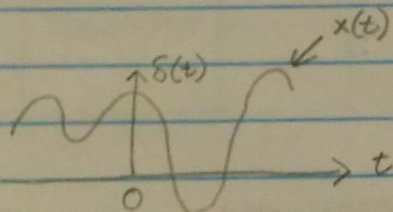 x(t)
δ(t)
t
0